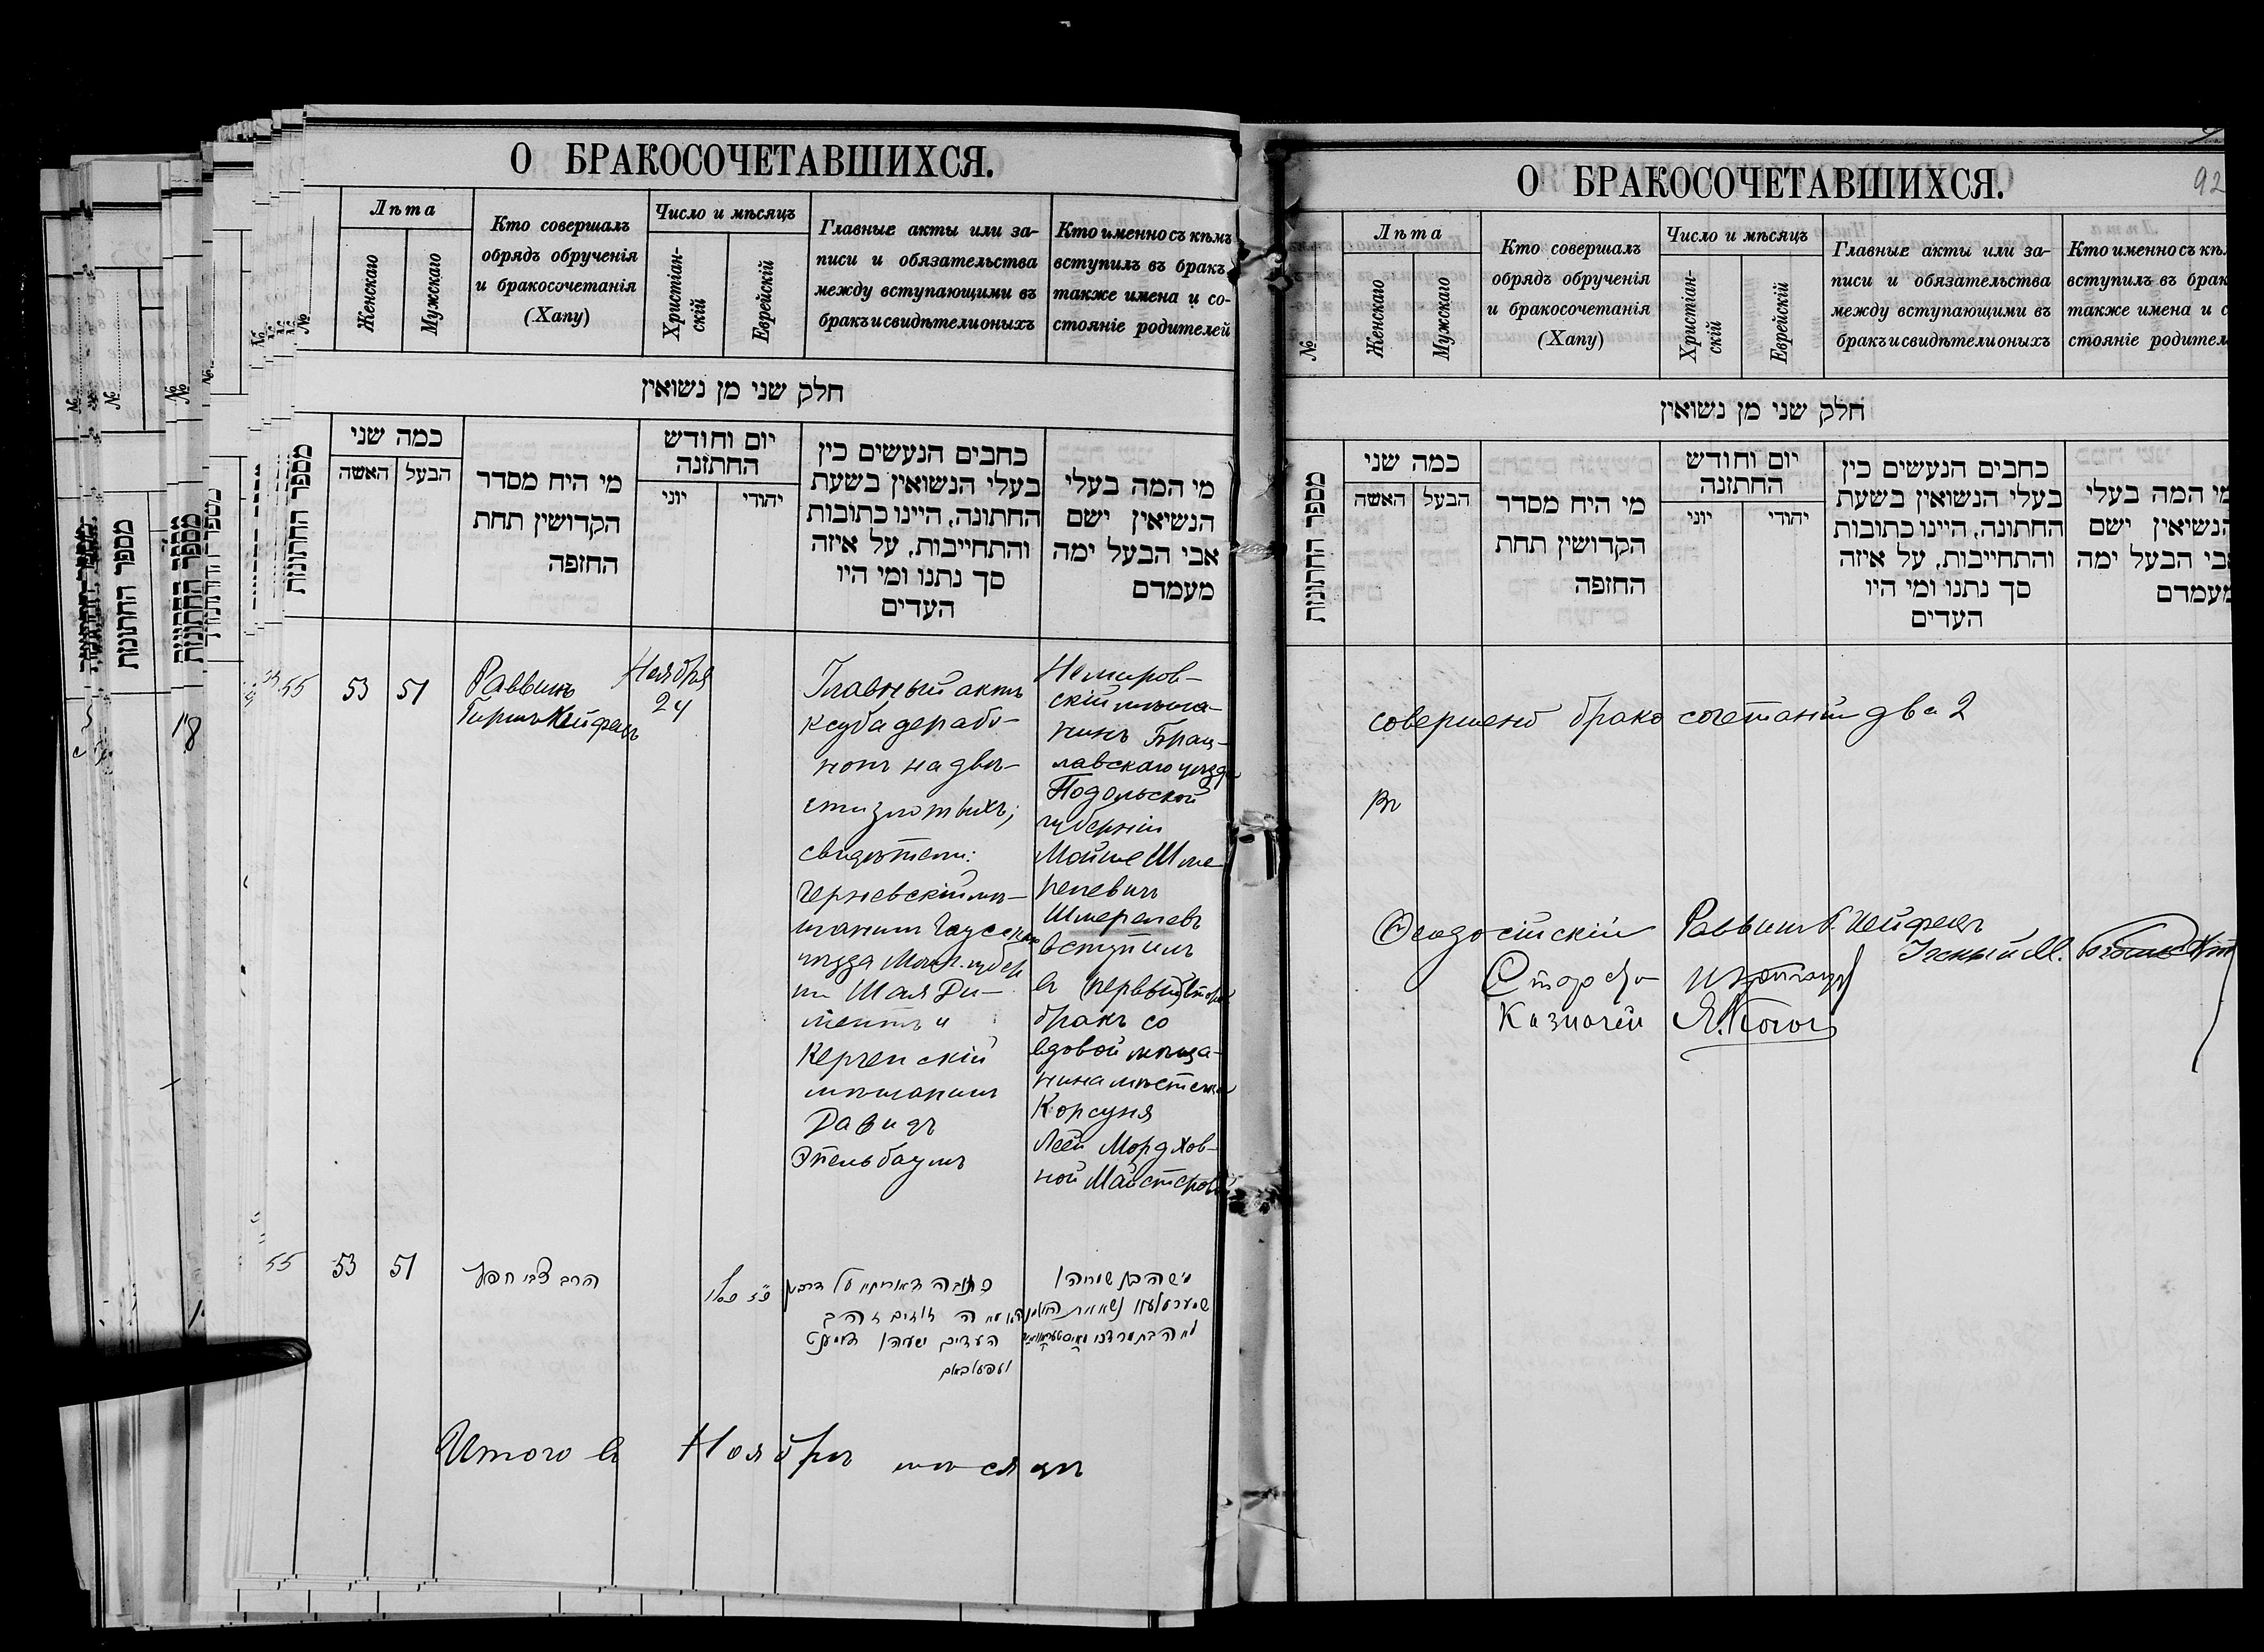 О БРАКОСОЧЕТАВШИХСЯ.
№
Лѣта
Женскаго
Мужскаго
Кто совершалъ
обрядъ обрученія
и бракосочетанія
(Хапу)
Число и мѣсяцъ
Христіан-
скій
Еврейскій
Главные акты или за-
писи и обязательства
между вступающими въ
бракъ и свидѣтели оныхъ
Кто именно съ кѣмъ
вступилъ въ бракъ
также имена и со-
стояніе родителей
חלק שני מן נשואין
מספר החתונות
כמה שני
האשה
הבעל
מי היח מסדר
הקדושין תחת
החזפה
יום וחודש
החתזנה
יוני
יהודי
כחבים הנעשים כין
בעלי הנשואין בשעת
החתונה, היינו כתובות
והתחייבות, על איזה
סך נתנו ומי היו
העדים
מי המה בעלי
הנשיאין ישם
אבי הבעל ימה
מעמדם
55
53
51
Раввинъ
Гиршъ Хейфецъ
Ноября
24
Главный актъ
ксуба дерабо-
нонъ на двѣ-
сти злотыхъ;
свидѣтели:
Черневскій мѣ-
щанинъ Чаусскаго
уѣзда Могил. губер
Шая Ди-
ментъ и
Керченскій
мѣщанинъ
Давидъ
Эпельбаумъ
Немиров-
скій мѣща-
нинъ Брац-
лавскаго уѣзда
Подольской
губерніи
Мойше Шме
релевичъ
Шмерелевъ
вступилъ
въ первый
бракъ со
вдовой мѣща-
нина мѣстечка
Корсуня
Леей Мордхов-
ной Майстеровой
55
53
51
הרב צבי חפץ
Итого въ Ноябрѣ мѣсяцѣ
О БРАКОСОЧЕТАВШИХСЯ.
92
№
Лѣта
Женскаго
Мужскаго
Кто совершалъ
обрядъ обрученія
и бракосочетанія
(Хапу)
Число и мѣсяцъ
Христіан-
скій
Еврейскій
Главные акты или за-
писи и обязательства
между вступающими въ
бракъ и свидѣтели оныхъ
Кто именно съ
вступилъ въ
также имена и
стояніе
חלק שני מן נשואין
מספר החתונות
כמה שני
האשה
הבעל
מי היח מסדר
הקדושין תחת
החזפה
יום וחודש
החתזנה
יוני
יהודי
כחבים הנעשים כין
בעלי הנשואין בשעת
החתונה, היינו כתובות
והתחייבות, על איזה
סך נתנו ומי היו
העדים
מי המה בעלי
הנשיאין ישם
אבי הבעל ימה
מעמדם
совершено бракосочетаній два 2
Ѳеодосійскій Раввинъ Г. Хейфецъ
Ученый М.
Староста
Казначей Я. Коген